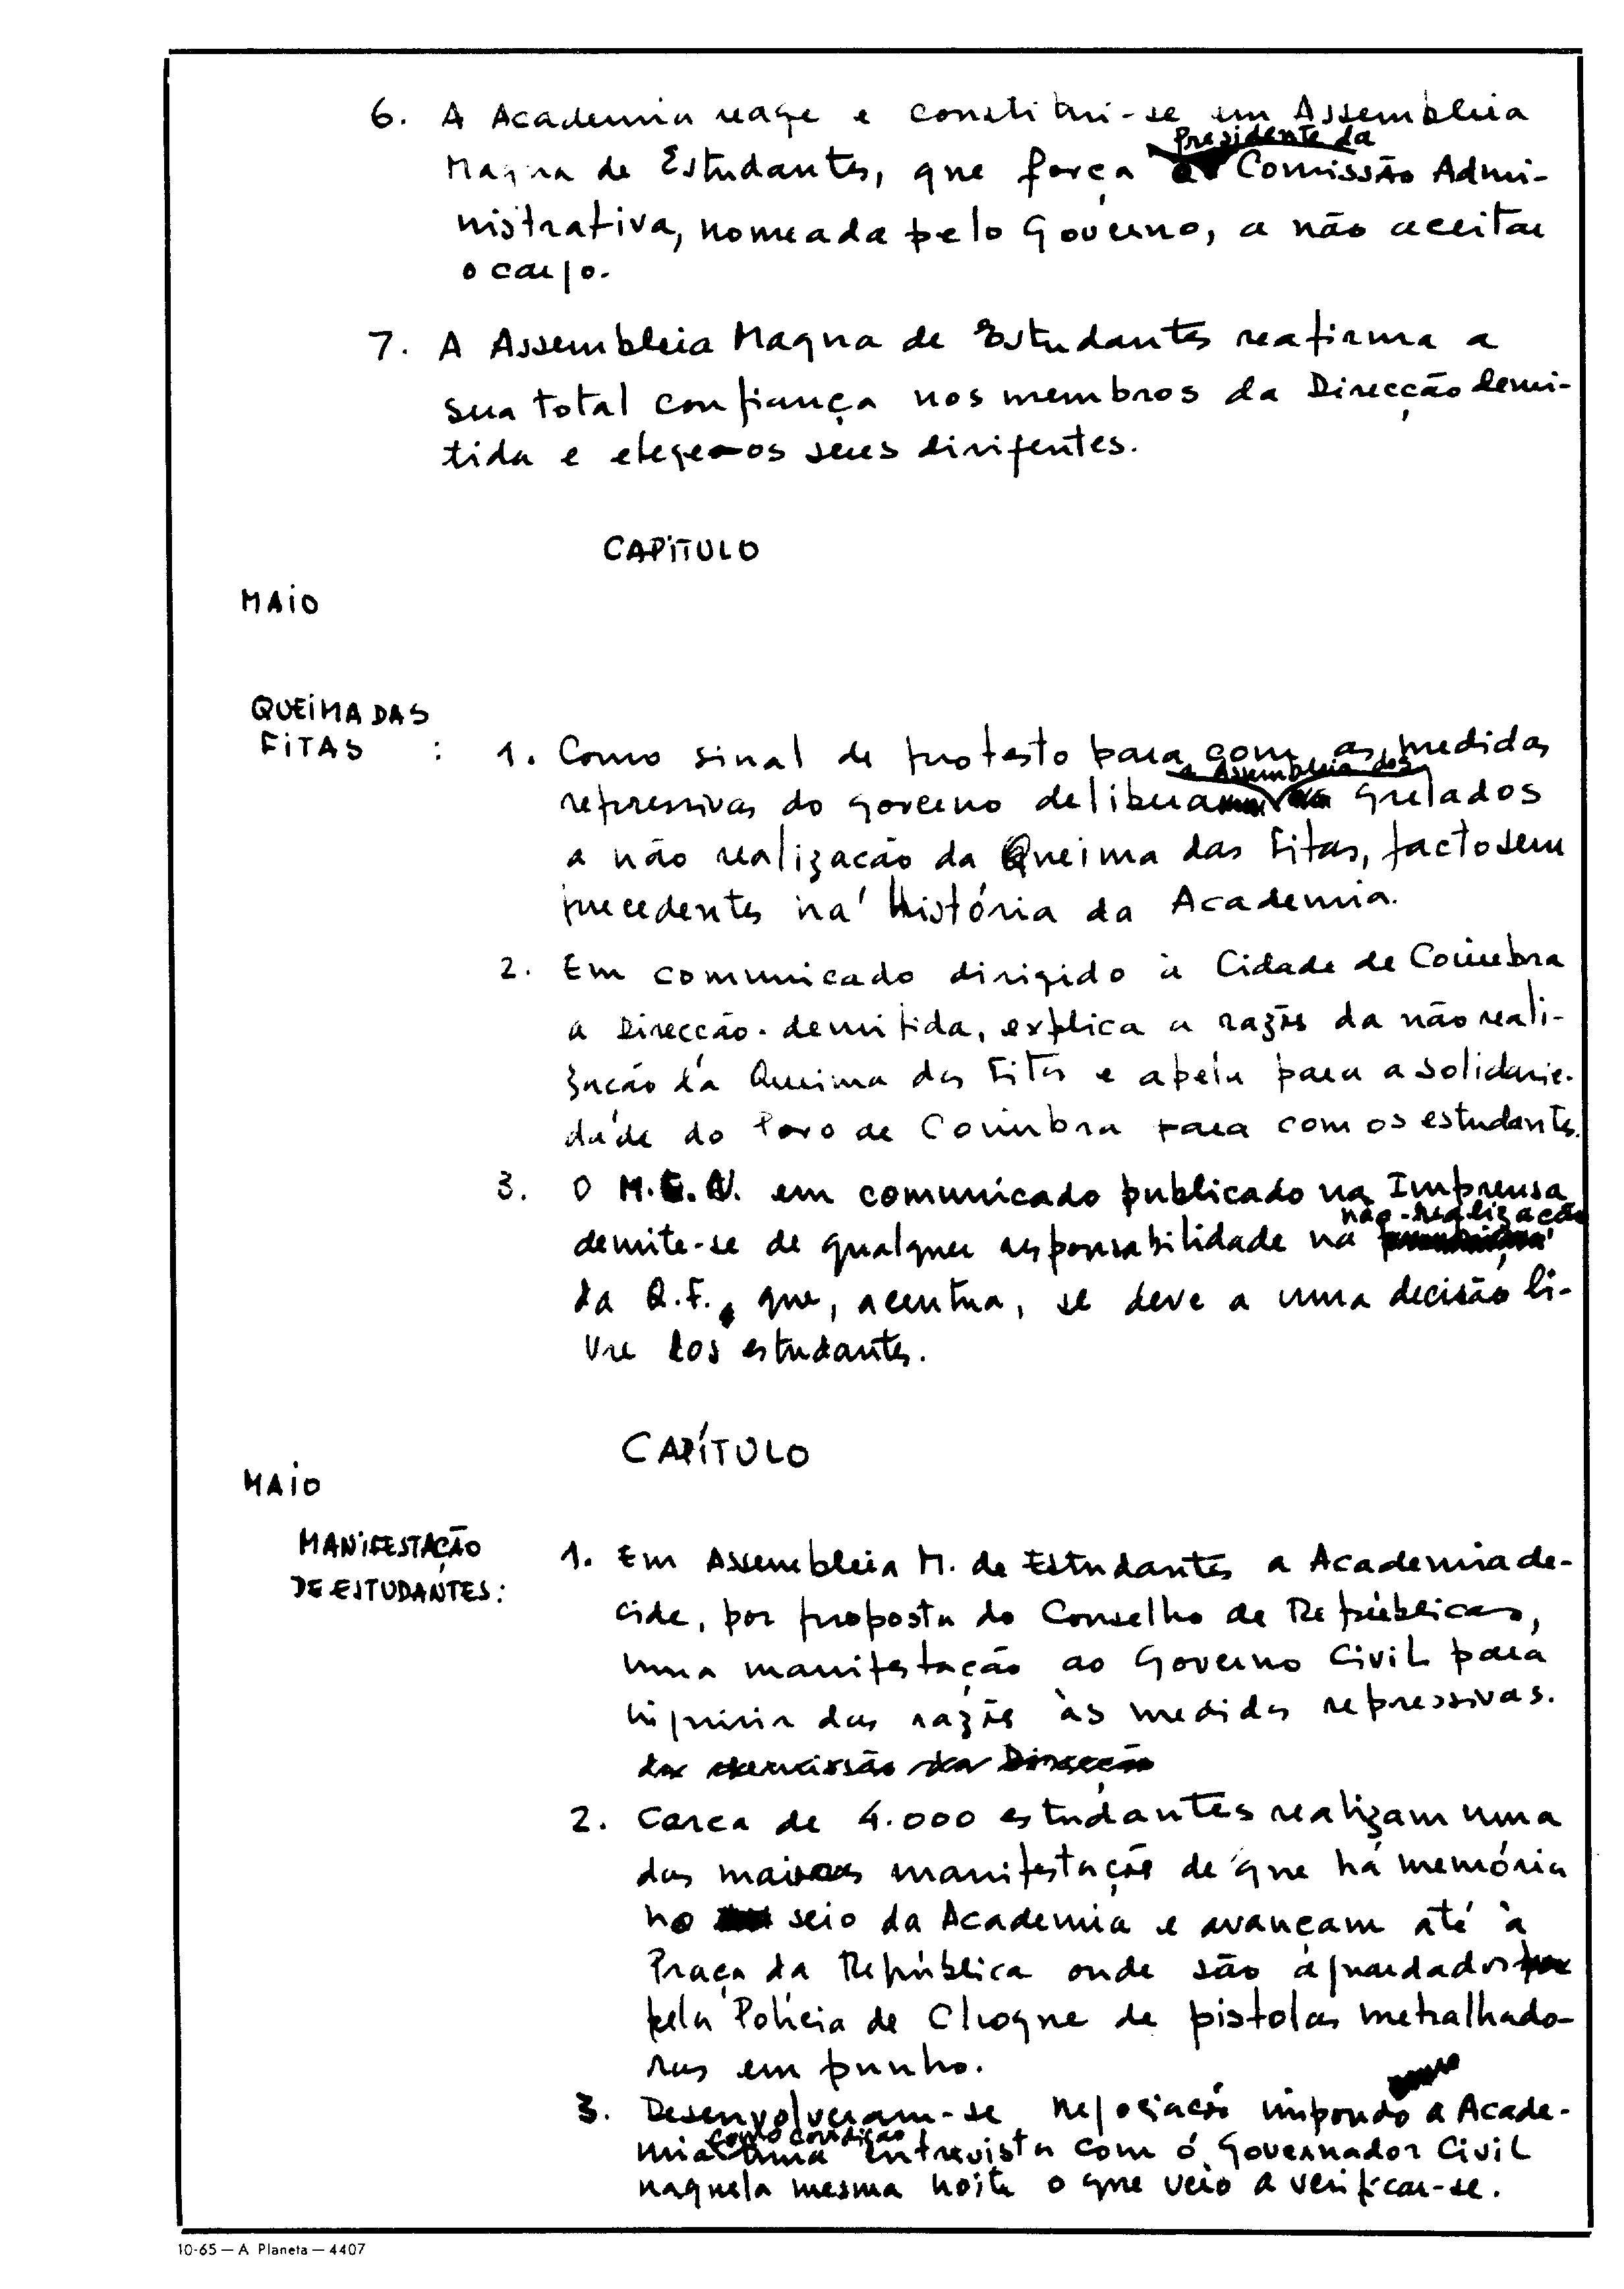 6. A Academia reage e constitui-se em Assembleia
Presidente da
Magna de Estudantes, que força a Comissão Admi-
nistrativa, nomeada pelo Governo, a não aceitar
o cargo.
7. A Assembleia Magna de Estudantes reafirma a
sua total confiança nos membros da Direcção demi-
tida e elege-os seus dirigentes.
CAPITULO
MAIO
QUEIMA DAS
FITAS :
1. Como sinal de protesto para com as medidas
a Assembleia dos
repressivas do governo delibera Grelados
a não realização da Queima das Fitas, facto sem
precedentes na História da Academia.
2. Em comunicado dirigido à Cidade de Coimbra
a Direcção demitida, explica a razões da não reali-
zação da Queima das Fitas e apela para a solidarie-
dade do Povo de Coimbra para com os estudantes.
3. O M.E.N. em comunicado publicado na Imprensa
não-realização
demite-se de qualquer responsabilidade na
da Q.F., que, acentua, se deve a uma decisão li-
vre dos estudantes.
CAPÍTULO
MAIO
MANIFESTAÇÃO
DE ESTUDANTES:
1. Em Assembleia M. de Estudantes a Academia de-
cide, por proposta do Conselho de Repúblicas,
uma manifestação ao Governo Civil para
inquirir das razões às medidas repressivas.
da demissão da Direcção
2. Cerca de 4.000 estudantes realizam uma
das maiores manifestações de que há memória
no seio da Academia e avançam até à
Praça da República onde são aguardados
pela Polícia de Choque de pistolas metralhado-
ras em punho.
3. Desenvolveram-se negociações impondo a Acade-
como condição
mia uma entrevista com o Governador Civil
naquela mesma noite o que veio a verificar-se.
10-65 — A Planeta — 4407